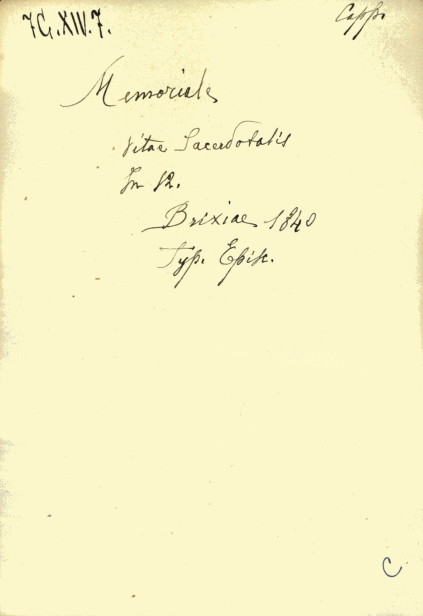 7G.XIV.7.
Capp.
Memoriale
Vitae Sacerdotalis
In 12.
Brixiae 1840
Typ. Episc.
C